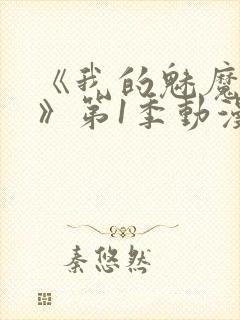 《我的魅魔
》第1季动漫
秦悠然